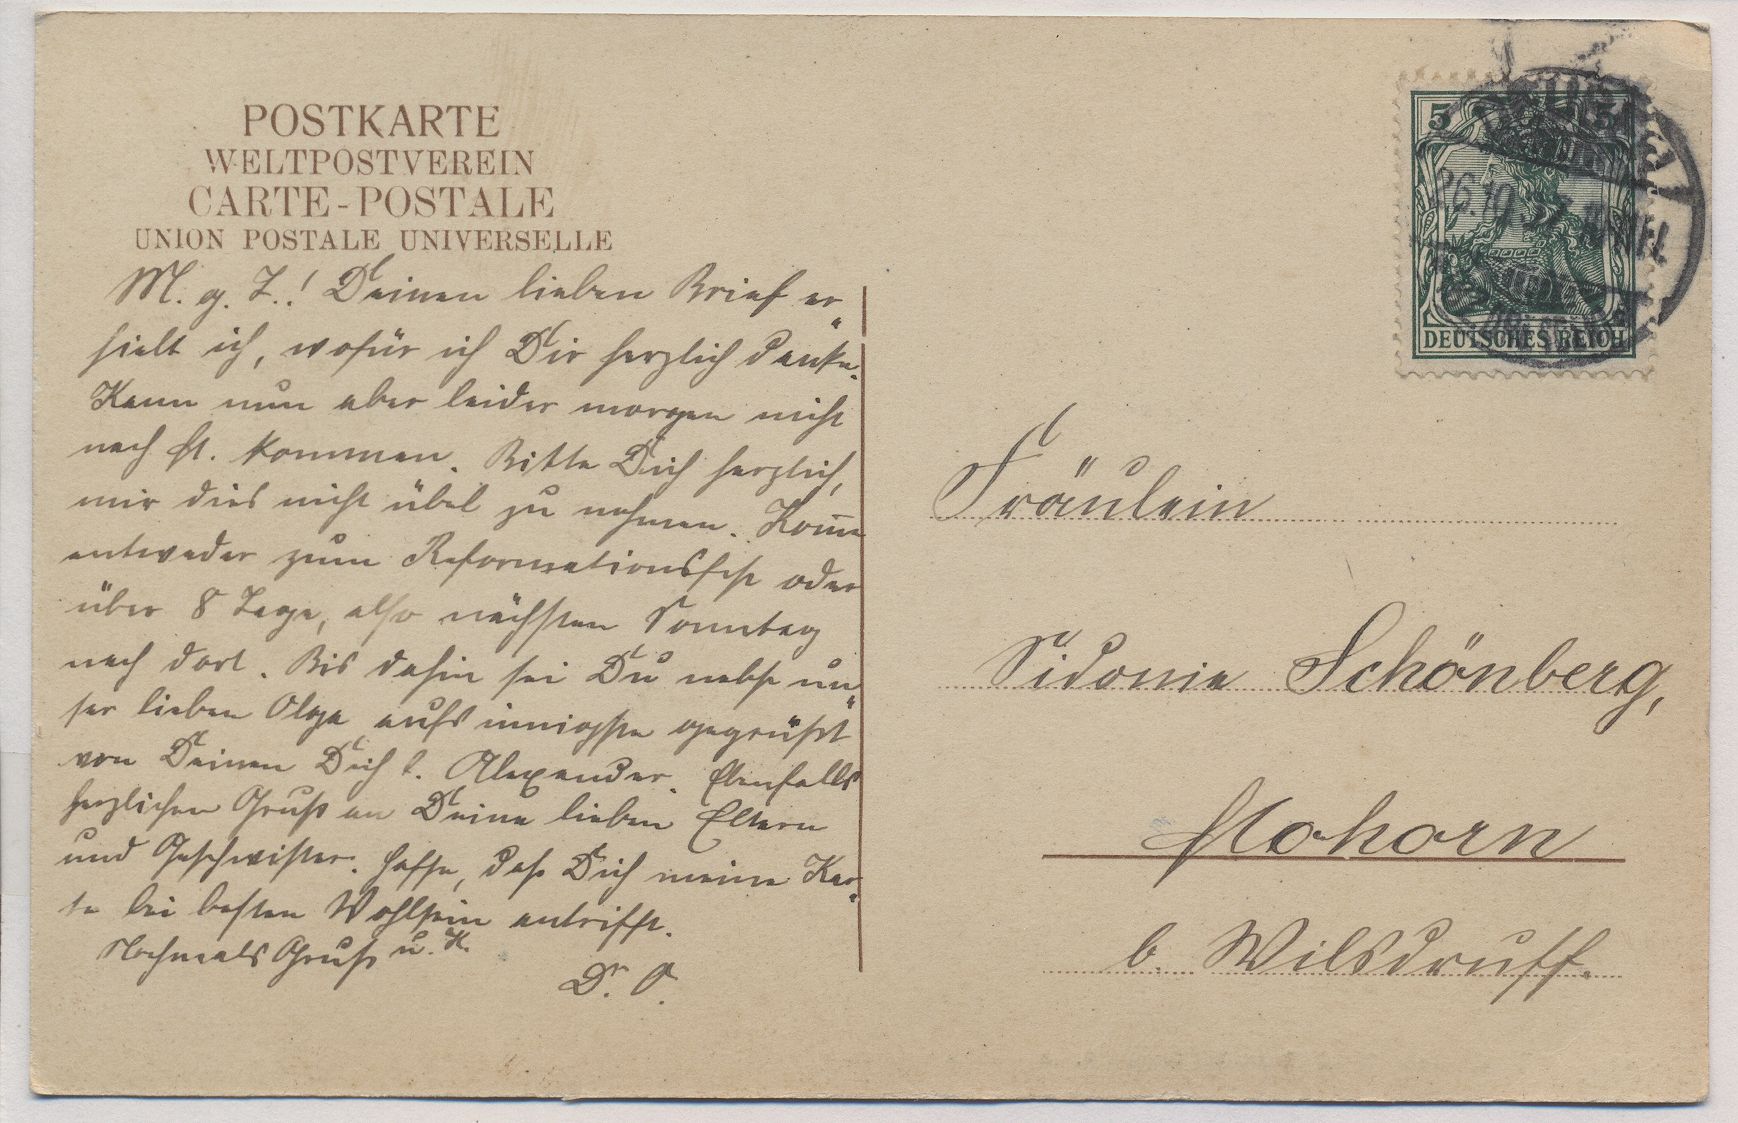 POSTKARTE
WELTPOSTVEREIN
CARTE-POSTALE
UNION POSTALE UNIVERSELLE
M. g. L.! Deinen lieben Brief er-
hielt ich, wofür ich Dir herzlich danke.
Kann nun aber leider morgen nicht
nach kommen. Bitte Dich herzlich,
mir dies nicht übel zu nehmen. Kom̅e
entweder zum Reformationsfest oder
über 8 Tage, also nächsten Sonntag
nach dort. Bis dahin sei Du nebst un-
ser lieben Olga aufs innigste gegrüßt
von Deinen Dich l. Alexander. Ebenfalls
herzlichen Gruß an Deine lieben Eltern
und Geschwister. Hoffe, daß Dich meine Kar-
te bei besten Wohlsein antrifft.
Nochmals Gruß u. K.
D. O.
5 5
26.10.
DEUTSCHES REICH
Fräulein
Sidonie Schönberg,
Mohorn
b. Wilsdruff.